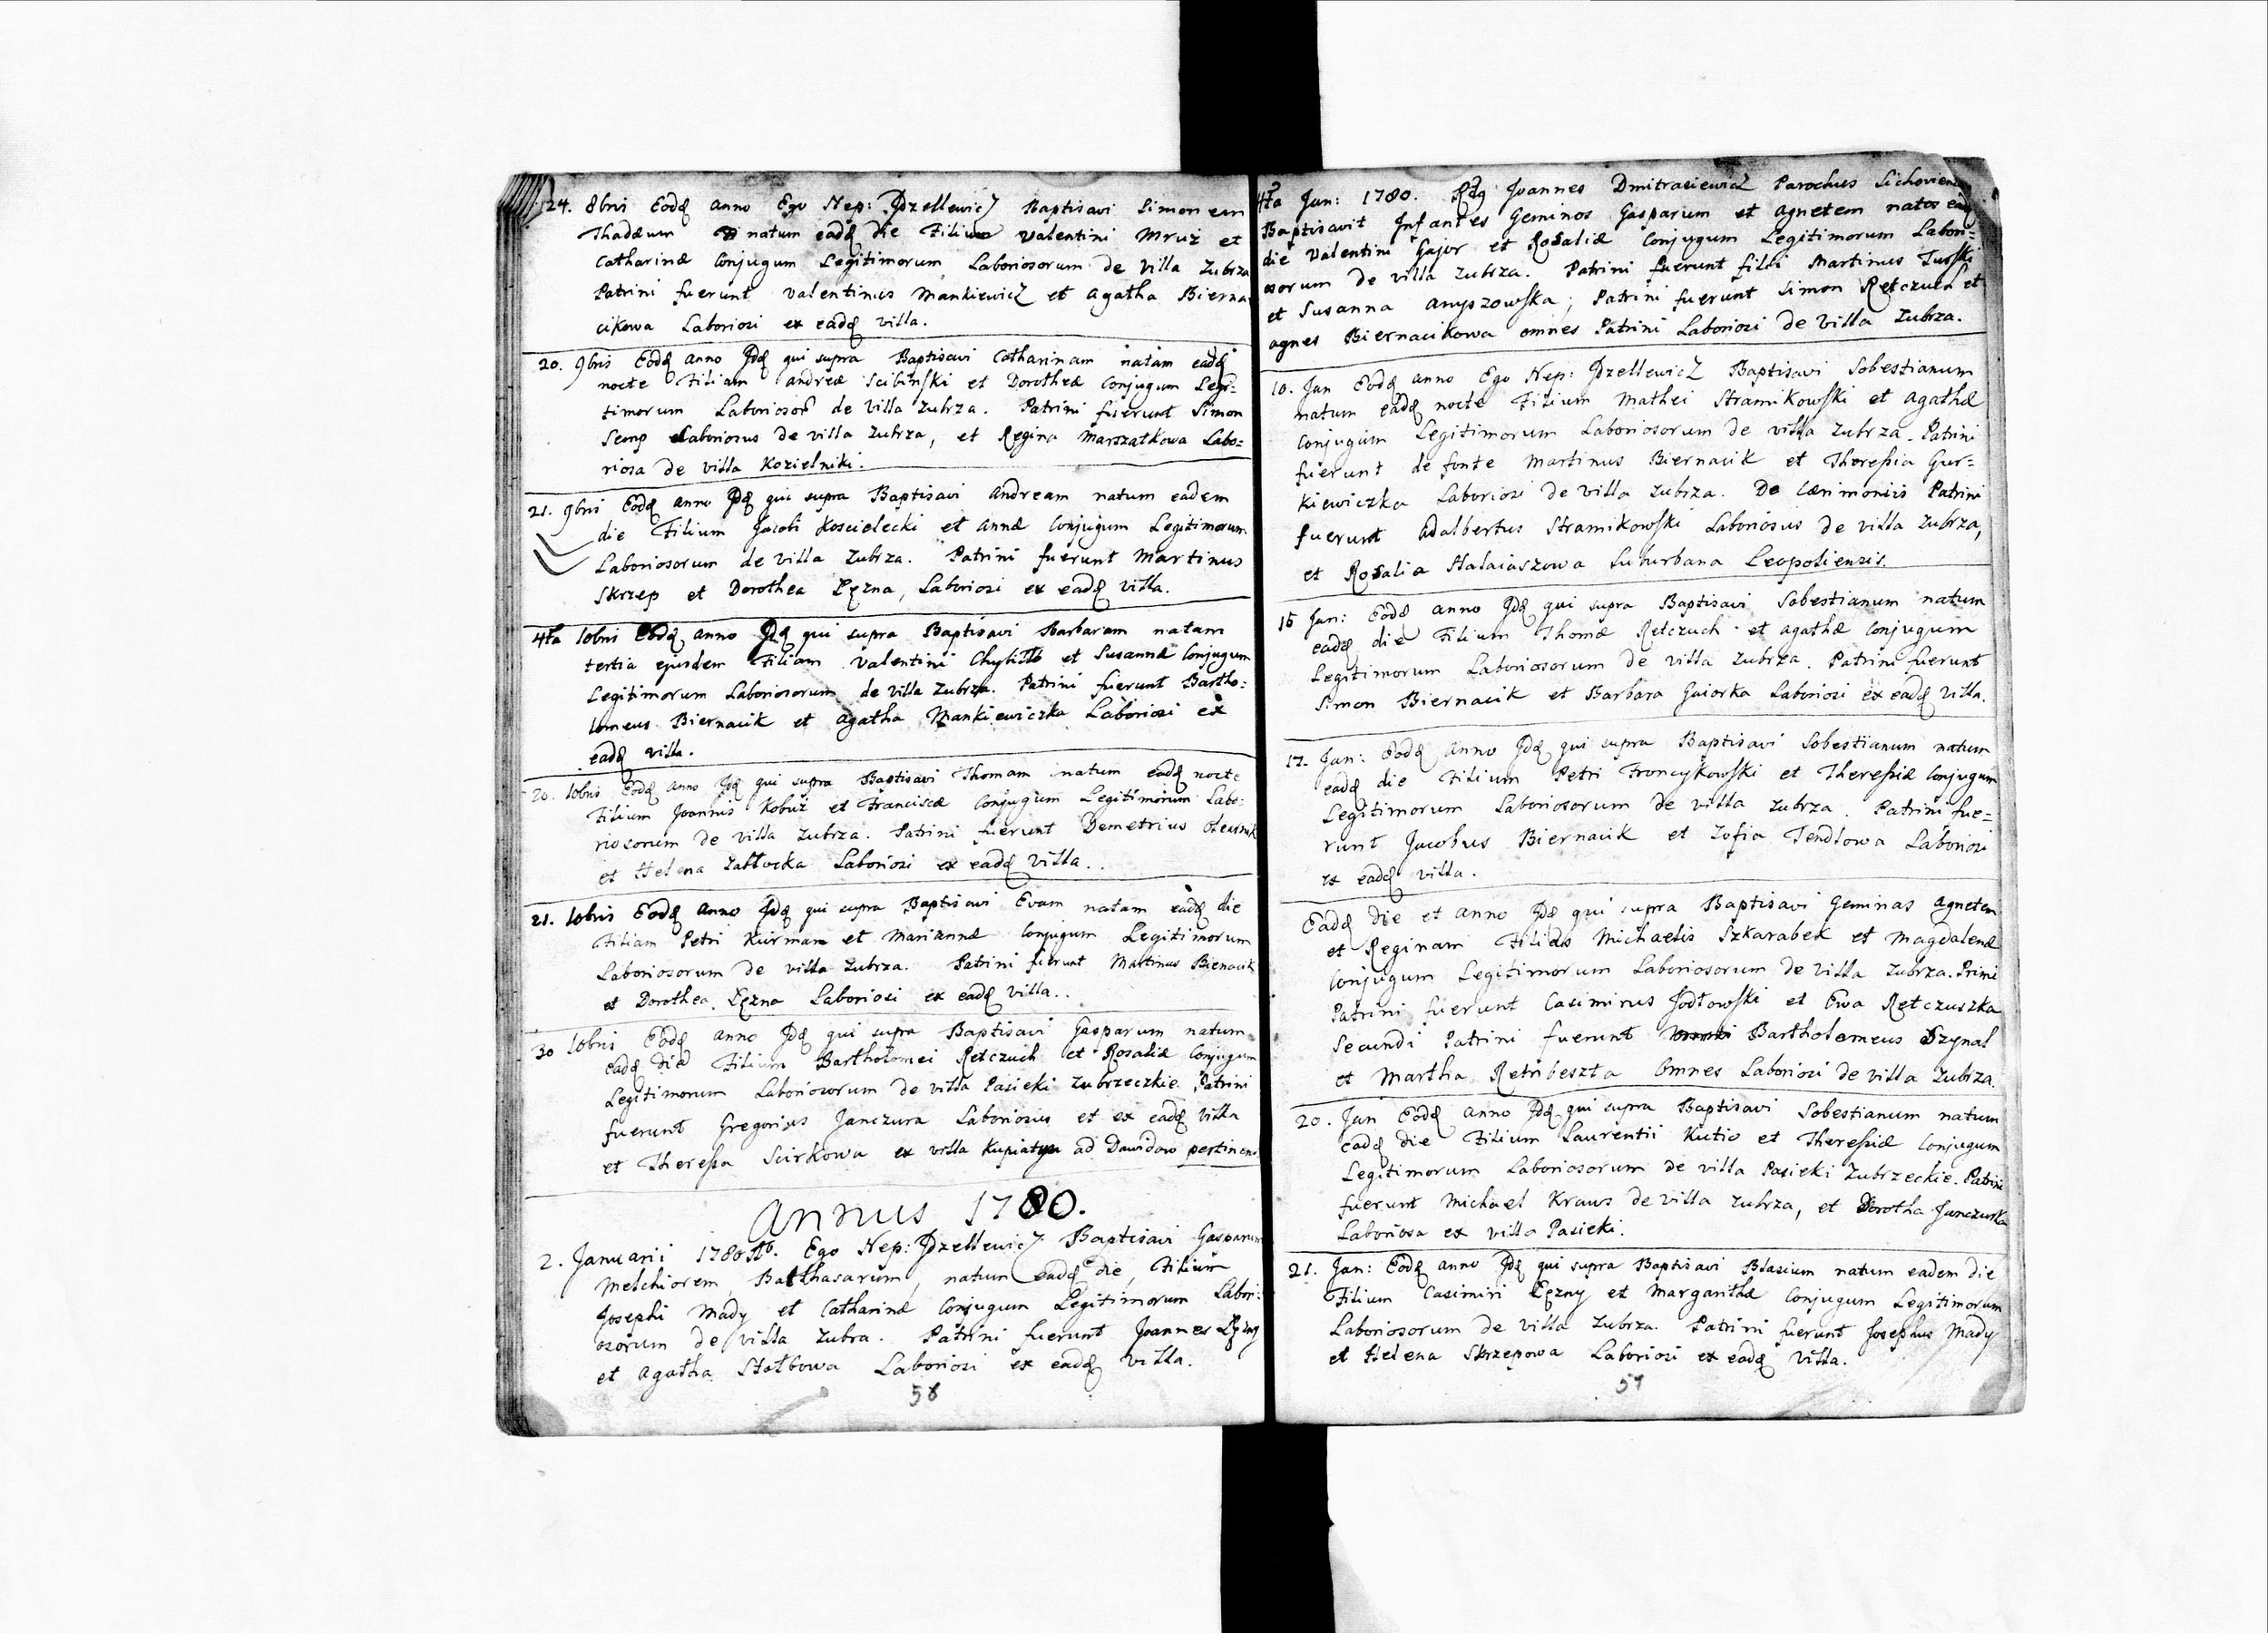 24. 8bris Eodq anno Ego Nep: Jdzellewicz Baptisavi Simonem
Thadæum natum eadq die Filium Valentini Mruz et
Catharinæ Conjugum Legitimorum Laboriosorum de Villa Zubrza
Patrini fuerunt Valentinus Mankiewicz et Agatha Bierna
cikowa Laboriosi ex eadq villa.
20. 9bris Eodq anno Jdq qui supra Baptisavi Catharinam natam eadq
nocte Filiam Andreæ Scibinski et Dorotheæ Conjugum Legi=
timorum Laboriosor de villa Zubrza. Patrini fuerunt Simon
Semp Laboriosus de villa Zubrza, et Regina Marszatkowa Labo=
riosa de villa Kozielniki.
21. 9bris Eodq anno Jdq qui supra Baptisavi Andream natum eadem
die Filium Jacobi Koscielecki et Annæ Conjugum Legitimorum
Laboriosorum de villa Zubrza. Patrini fuerunt Martinus
Skrzep et Dorothea Lęzna, Laboriosi ex eadq villa.
4ta 10bris Eodq anno Jdq qui supra Baptisavi Barbaram natam
tertia ejusdem Filiam Valentini et Susannæ Conjugum
Legitimorum Laboriosorum de villa Zubrza. Patrini fuerunt Bartho=
lomeus Biernacik et Agatha Mankiewiczka Laboriosi ex
eadq villa.
20. 10bris Eodq anno Jdq qui supra Baptisavi Thomam natum eadq nocte
Filium Joannis Kobuz et Franciscæ Conjugum Legitimorum Labo=
riosorum de villa Zubrza. Patrini fuerunt Demetrius
et Helena Zabłocka Laboriosi ex eadq villa..
21. 10bris Eodq Anno Jdq qui supra Baptisavi Evam natam eadq die
Filiam Petri Kurman et Mariannæ Conjugum Legitimorum
Laboriosorum de villa Zubrza. Patrini fuerunt Martinus Bienacik
et Dorothea Lęzna Laboriosi ex eadq villa..
30 10bris Eodq anno Jdq qui supra Baptisavi Gasparum natum
eadq die Filium Bartholomei Retczuch et Rosaliæ Conjugum
Legitimorum Laboriosorum de villa Pasieki Zubrzeczkie. Patrini
fuerunt Gregorius Janczura Laboriosus et ex eadq villa
et Theressa Scirkowa ex villa Kupiatyn ad Dawidow pertinens.
Annus 1780.
2. Januarii 1780. Ego Nep: Jdzellewicz Baptisavi Gasparum
Melchiorem, Balthasarum, natum eadq die, Filium
Josephi Mady et Catharinæ Conjugum Legitimorum Labori=
osorum de villa Zubra. Patrini fuerunt Joannes Lęzny
et Agatha Stołbowa Laboriosi ex eadq villa.
58
4ta Jan: 1780. Rdq Joannes Dmitrasiewicz Parochus
Baptisavit Infantes Geminos Gasparum et Agnetem natos eadq
die Valentini Gajor et Rosaliæ Conjugum Legitimorum Labori=
osorum de villa Zubrza. Patrini fuerunt Martinus Tuski
et Susanna Anyszowska; Patrini fuerunt Simon Retczuch et
Agnes Biernacikowa omnes Patrini Laboriosi de Villa Zubrza.
10. Jan Eodq anno Ego Nep: Jdzellewicz Baptisavi Sobestianum
natum eadq nocte Filium Mathei Stramikowski et Agathæ
Conjugum Legitimorum Laboriosorum de villa Zubrza. Patrini
fuerunt de fonte Martinus Biernacik et Theressia Gur=
kiewiczka Laboriosi de villa Zubrza. De Cærimoniis Patrini
fuerunt Adalbertus Stramikowski Laboriosus de villa Zubrza,
et Rosalia Halaiaszowa Suburbana Leopoliensis.
16 Jan: Eodq anno Jdq qui supra Baptisavi Sobestianum natum
eadq die Filium Thomæ Retczuch et Agathæ Conjugum
Legitimorum Laboriosorum de villa Zubrza. Patrini fuerunt
Simon Biernacik et Barbara Gaiorka Laboriosi ex eadq villa.
17. Jan: Eodq anno Jdq qui supra Baptisavi Sobestianum natum
eadq die Filium Petri Froncykowski et Theressiæ Conjugum
Legitimorum Laboriosorum de villa Zubrza. Patrini fue=
runt Jacobus Biernacik et Zofia Tendlowa Laboriosi
ex eadq villa.
Eadq Die et anno Jdq qui supra Baptisavi Geminas Agnetem
et Reginam Filias Michaelis Szkarabek et Magdalenæ
Conjugum Legitimorum Laboriosorum de villa Zubrza. Primi
Patrini fuerunt Casimirus Jodłowski et Ewa Retczuszka
Secundi Patrini fuerunt Bartholemeus Szynal
et Martha Retribeszta Omnes Laboriosi de villa Zubrza.
20. Jan Eodq anno Jdq qui supra Baptisavi Sobestianum natum
eadq die Filium Laurentii Kutio et Theressiæ Conjugum
Legitimorum Laboriosorum de villa Pasieki Zubrzeckie. Patrini
fuerunt Michael Kraws de villa Zubrza, et Dorotha Janczurka
Laboriosa ex villa Pasieki.
21. Jan: Eodq anno Jdq qui supra Baptisavi Blasium natum eadem die
Filium Casimiri Lęzny et Margarithæ Conjugum Legitimorum
Laboriosorum de villa Zubrza. Patrini fuerunt Josephus Mady
et Helena Skrzepowa Laboriosi ex eadq villa.